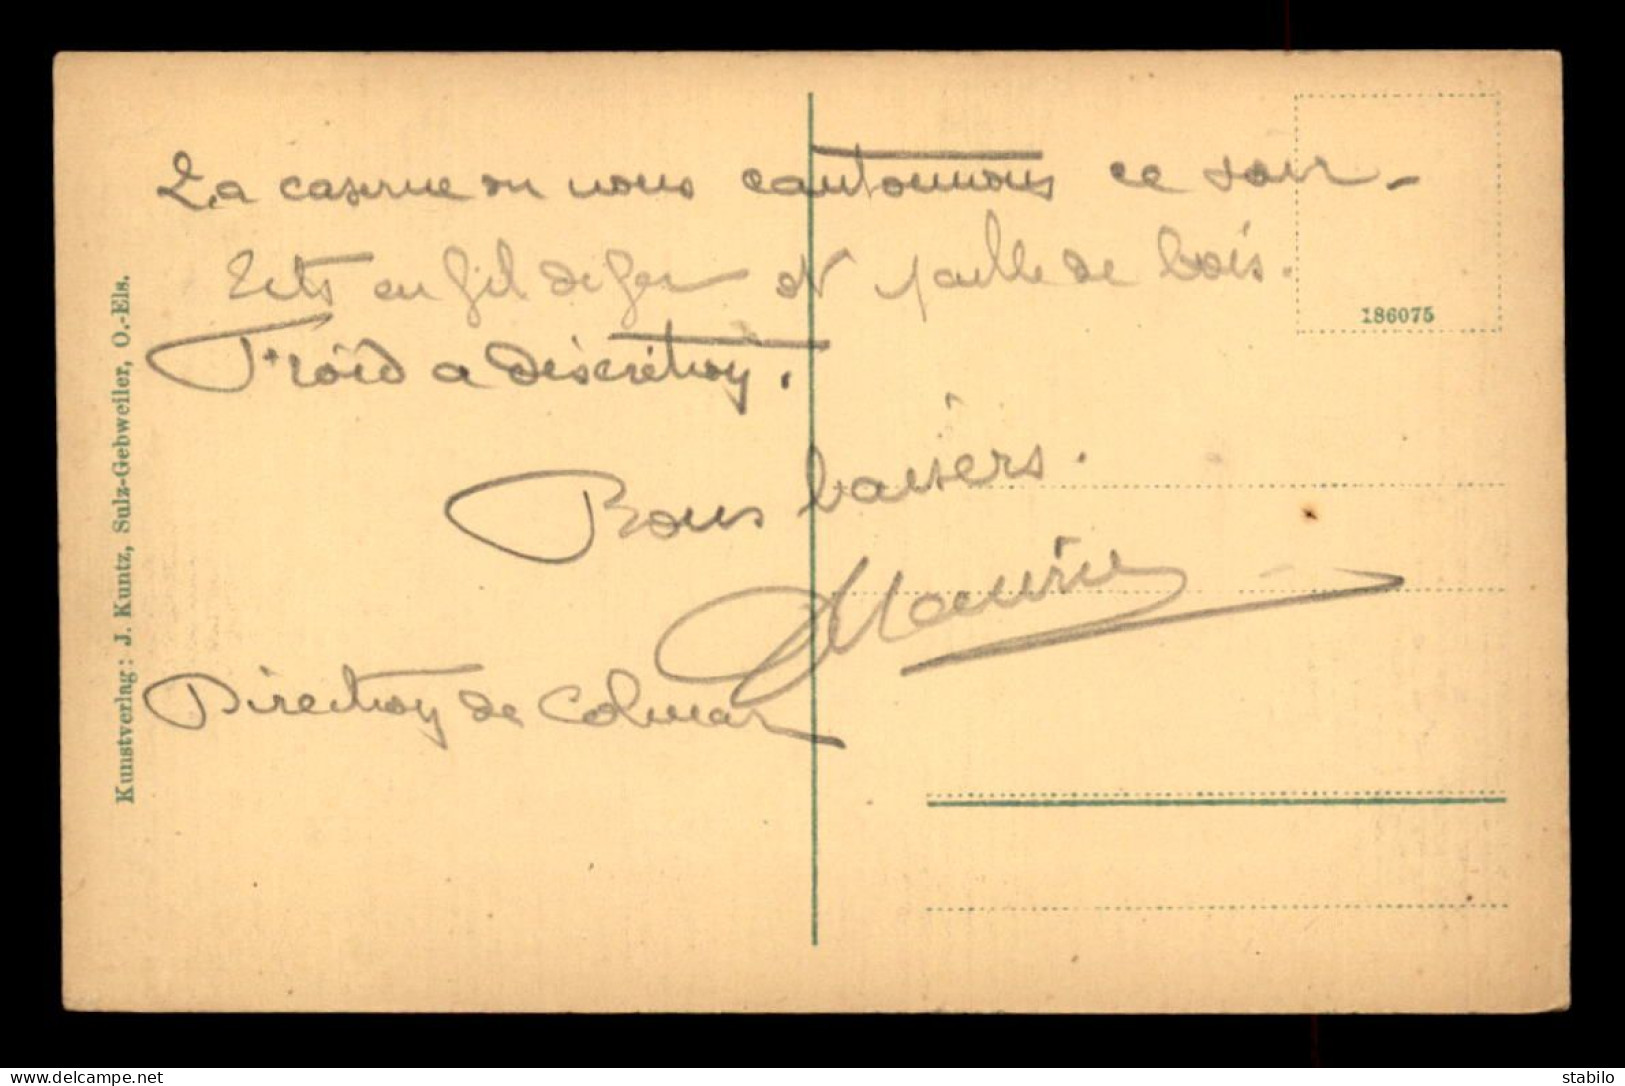 La caserne ou nous cantonnons ce soir -
Lits en fil de fer et paille de bois.
Froid a discrétion.
Bons baisers.
Maurice
Direction de Colmar
Kunstverlag: J. Kuntz, Sulz-Gebweiler, O.-Els.
186075
www.delcampe.net
stabilo